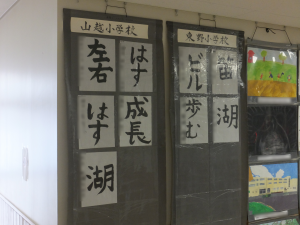 山越小学校
はす
成長
左右
はす
湖
東野小学校
笛
湖
ビル
歩む